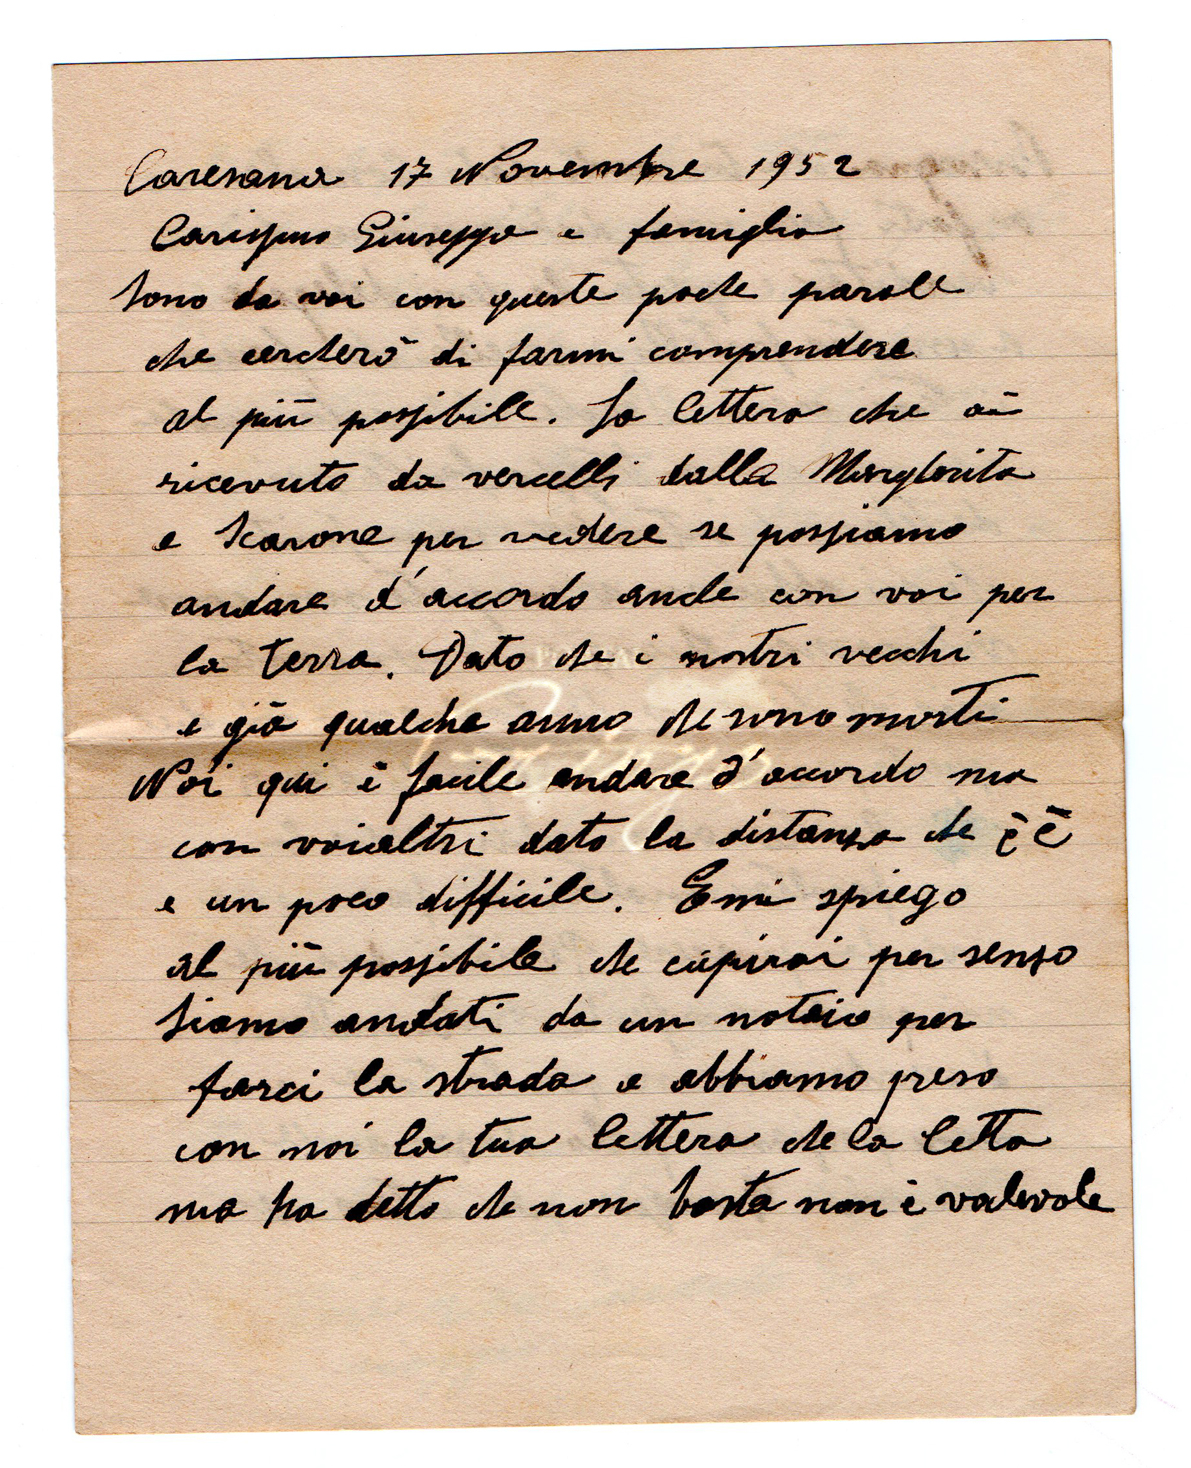 Caresana 17 Novembre 1952
Carissimo Giuseppe e famiglia
Sono da voi con queste poche parole
che cercherò di farmi comprendere
al più possibile. La lettera che ai
ricevuto da vercelli dalla Margherita
e Scarone per vedere se possiamo
andare d'accordo anche con voi per
la terra. Dato che i nostri vecchi
e già qualche anno che sono morti
Noi qui è facile andare d'accordo ma
con voialtri dato la distanza che c'è
e un poco difficile. E mi spiego
al più possibile che capirai per senso
Siamo andati da un notaio per
farci la strada e abbiamo preso
con noi la tua lettera che la letta
ma ha detto che non basta non è valevole